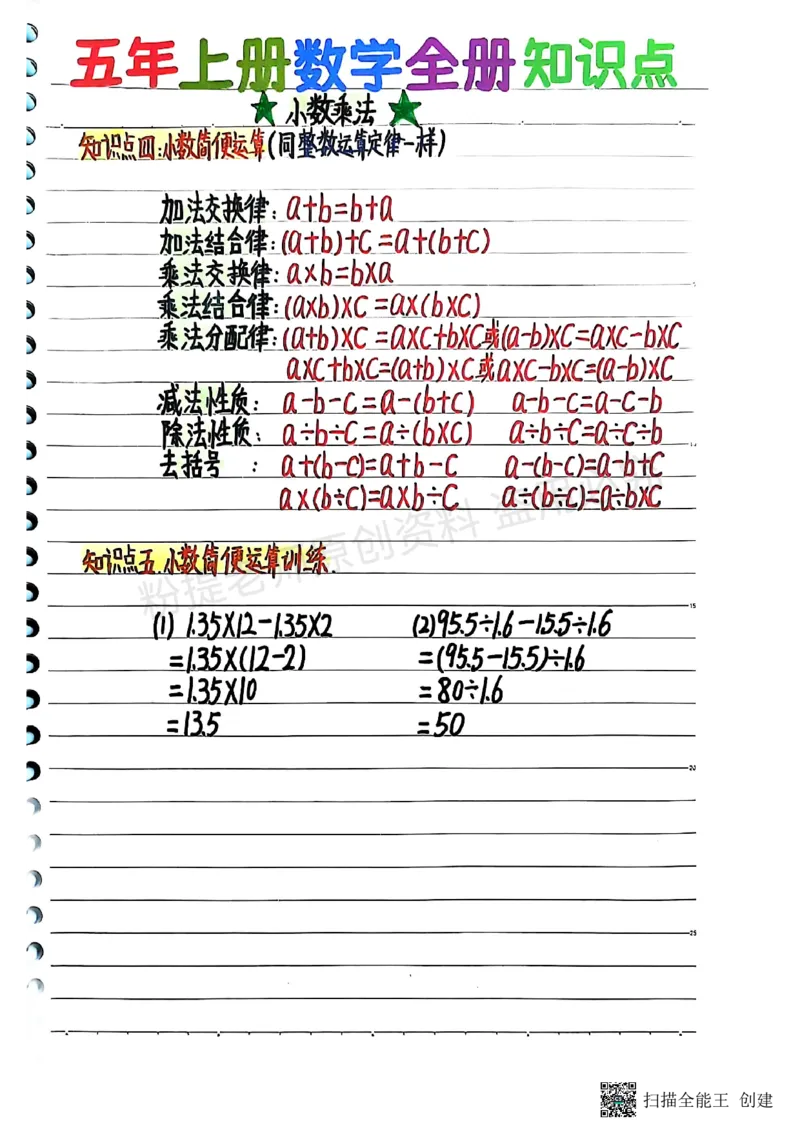 五年上册数学全册知识点
★小数乘法★
知识点四:小数简便运算(同整数运算定律一样)
加法交换律:a+b=b+a
加法结合律:(a+b)+C=a+(b+C)
乘法交换律:a×b=b×a
乘法结合律:(a×b)×C=a×(b×C)
乘法分配律:(a+b)×C=a×C+b×C或(a-b)×C=a×C-b×C
a×C+b×C=(a+b)×C或a×C-b×C=(a-b)×C
减法性质: a-b-C=a-(b+C) a-b-C=a-C-b
除法性质: a÷b÷C=a÷(b×C) a÷b÷C=a÷C÷b
去括号 : a+(b-C)=a+b-C a-(b-C)=a-b+C
a×(b÷C)=a×b÷C a÷(b÷C)=a÷b×C
粉提老师原创资料 盗用必究
知识点五.小数简便运算训练.
15
(1) 1.35×12-1.35×2 (2)95.5÷1.6-15.5÷1.6
=1.35×(12-2) =(95.5-15.5)÷1.6
=1.35×10 =80÷1.6
=13.5 =50
20
25
扫描全能王 创建